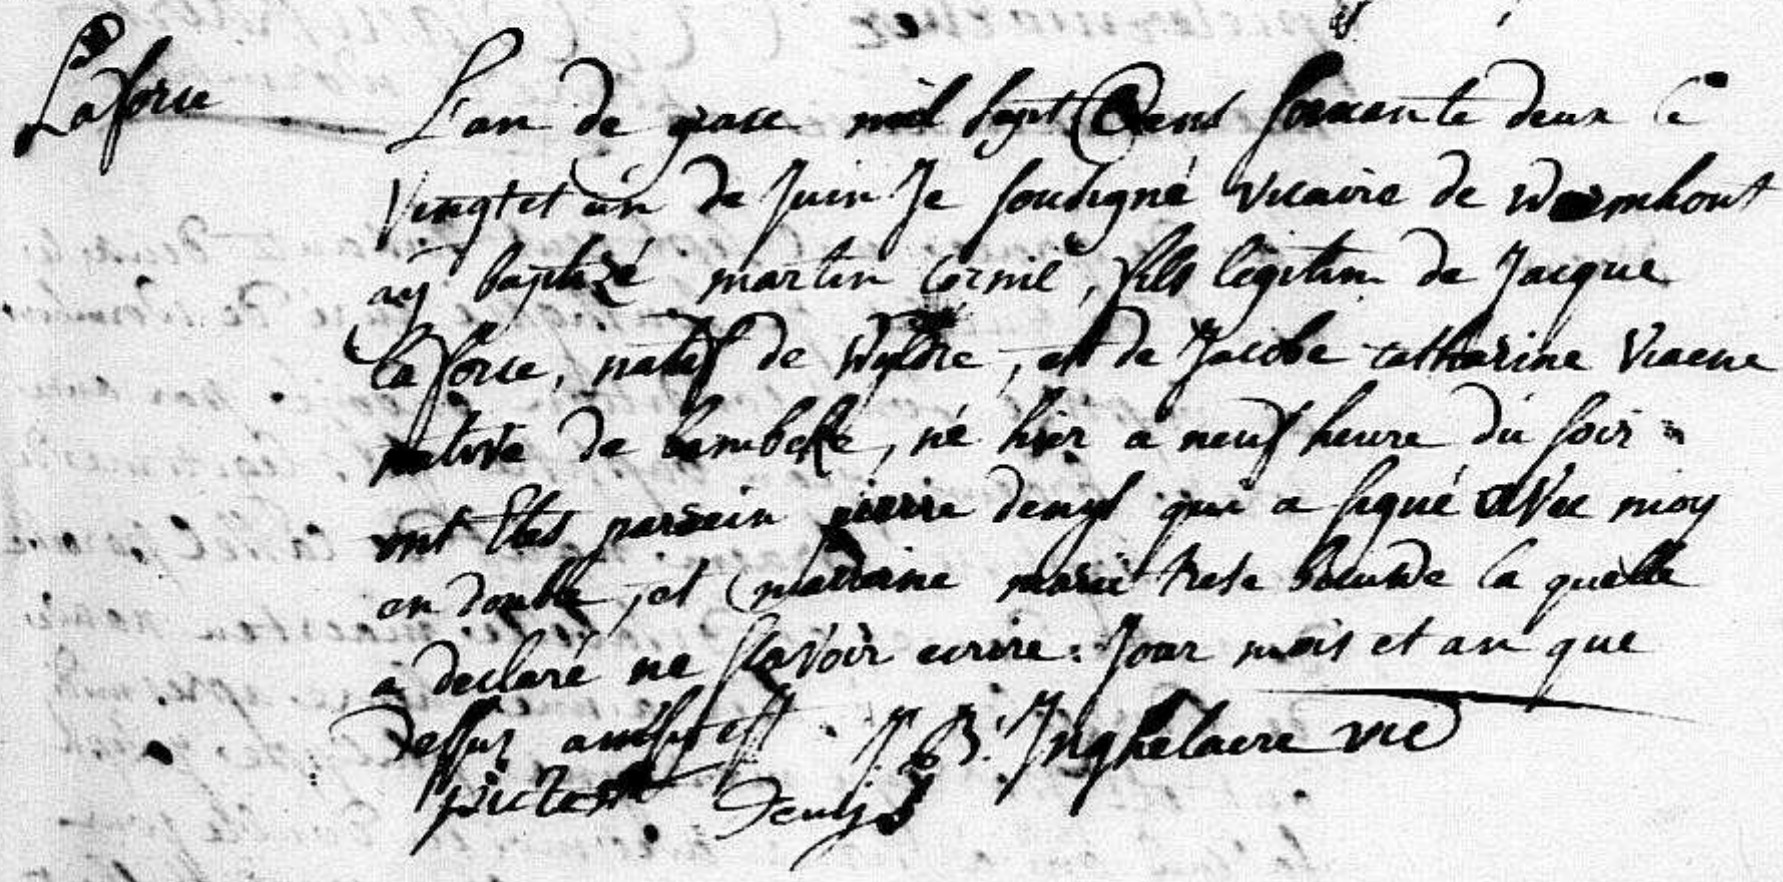 Laforce
L'an de grace mil sept Cens soixante deux le
vingt et un de Juin Je soubsigné vicaire de wormhout
ay baptizé martin Cornil, fils legitim de Jacque
laforce, natif de Wyldre, et de Jacobe catharine Viaene
native de bambeke, né hier a neuf heure du soir
ont Etés parrein pierre denys qui a signé avec moy
en double, et marraine marie trese la quelle
a declaré ne sçavoir ecrire. Jour mois et an que
dessus J. B. Inghelaere vic
Denys